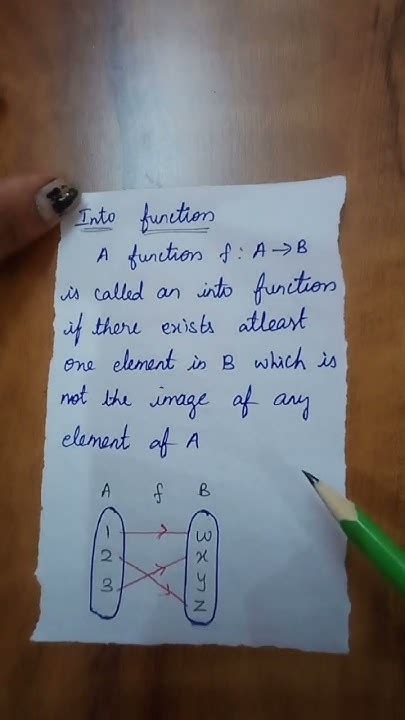 Into function
A function f : A → B
is called an into function
if there exists atleast
one element in B which is
not the image of any
element of A
A f B
1 w
2 x
3 y
z